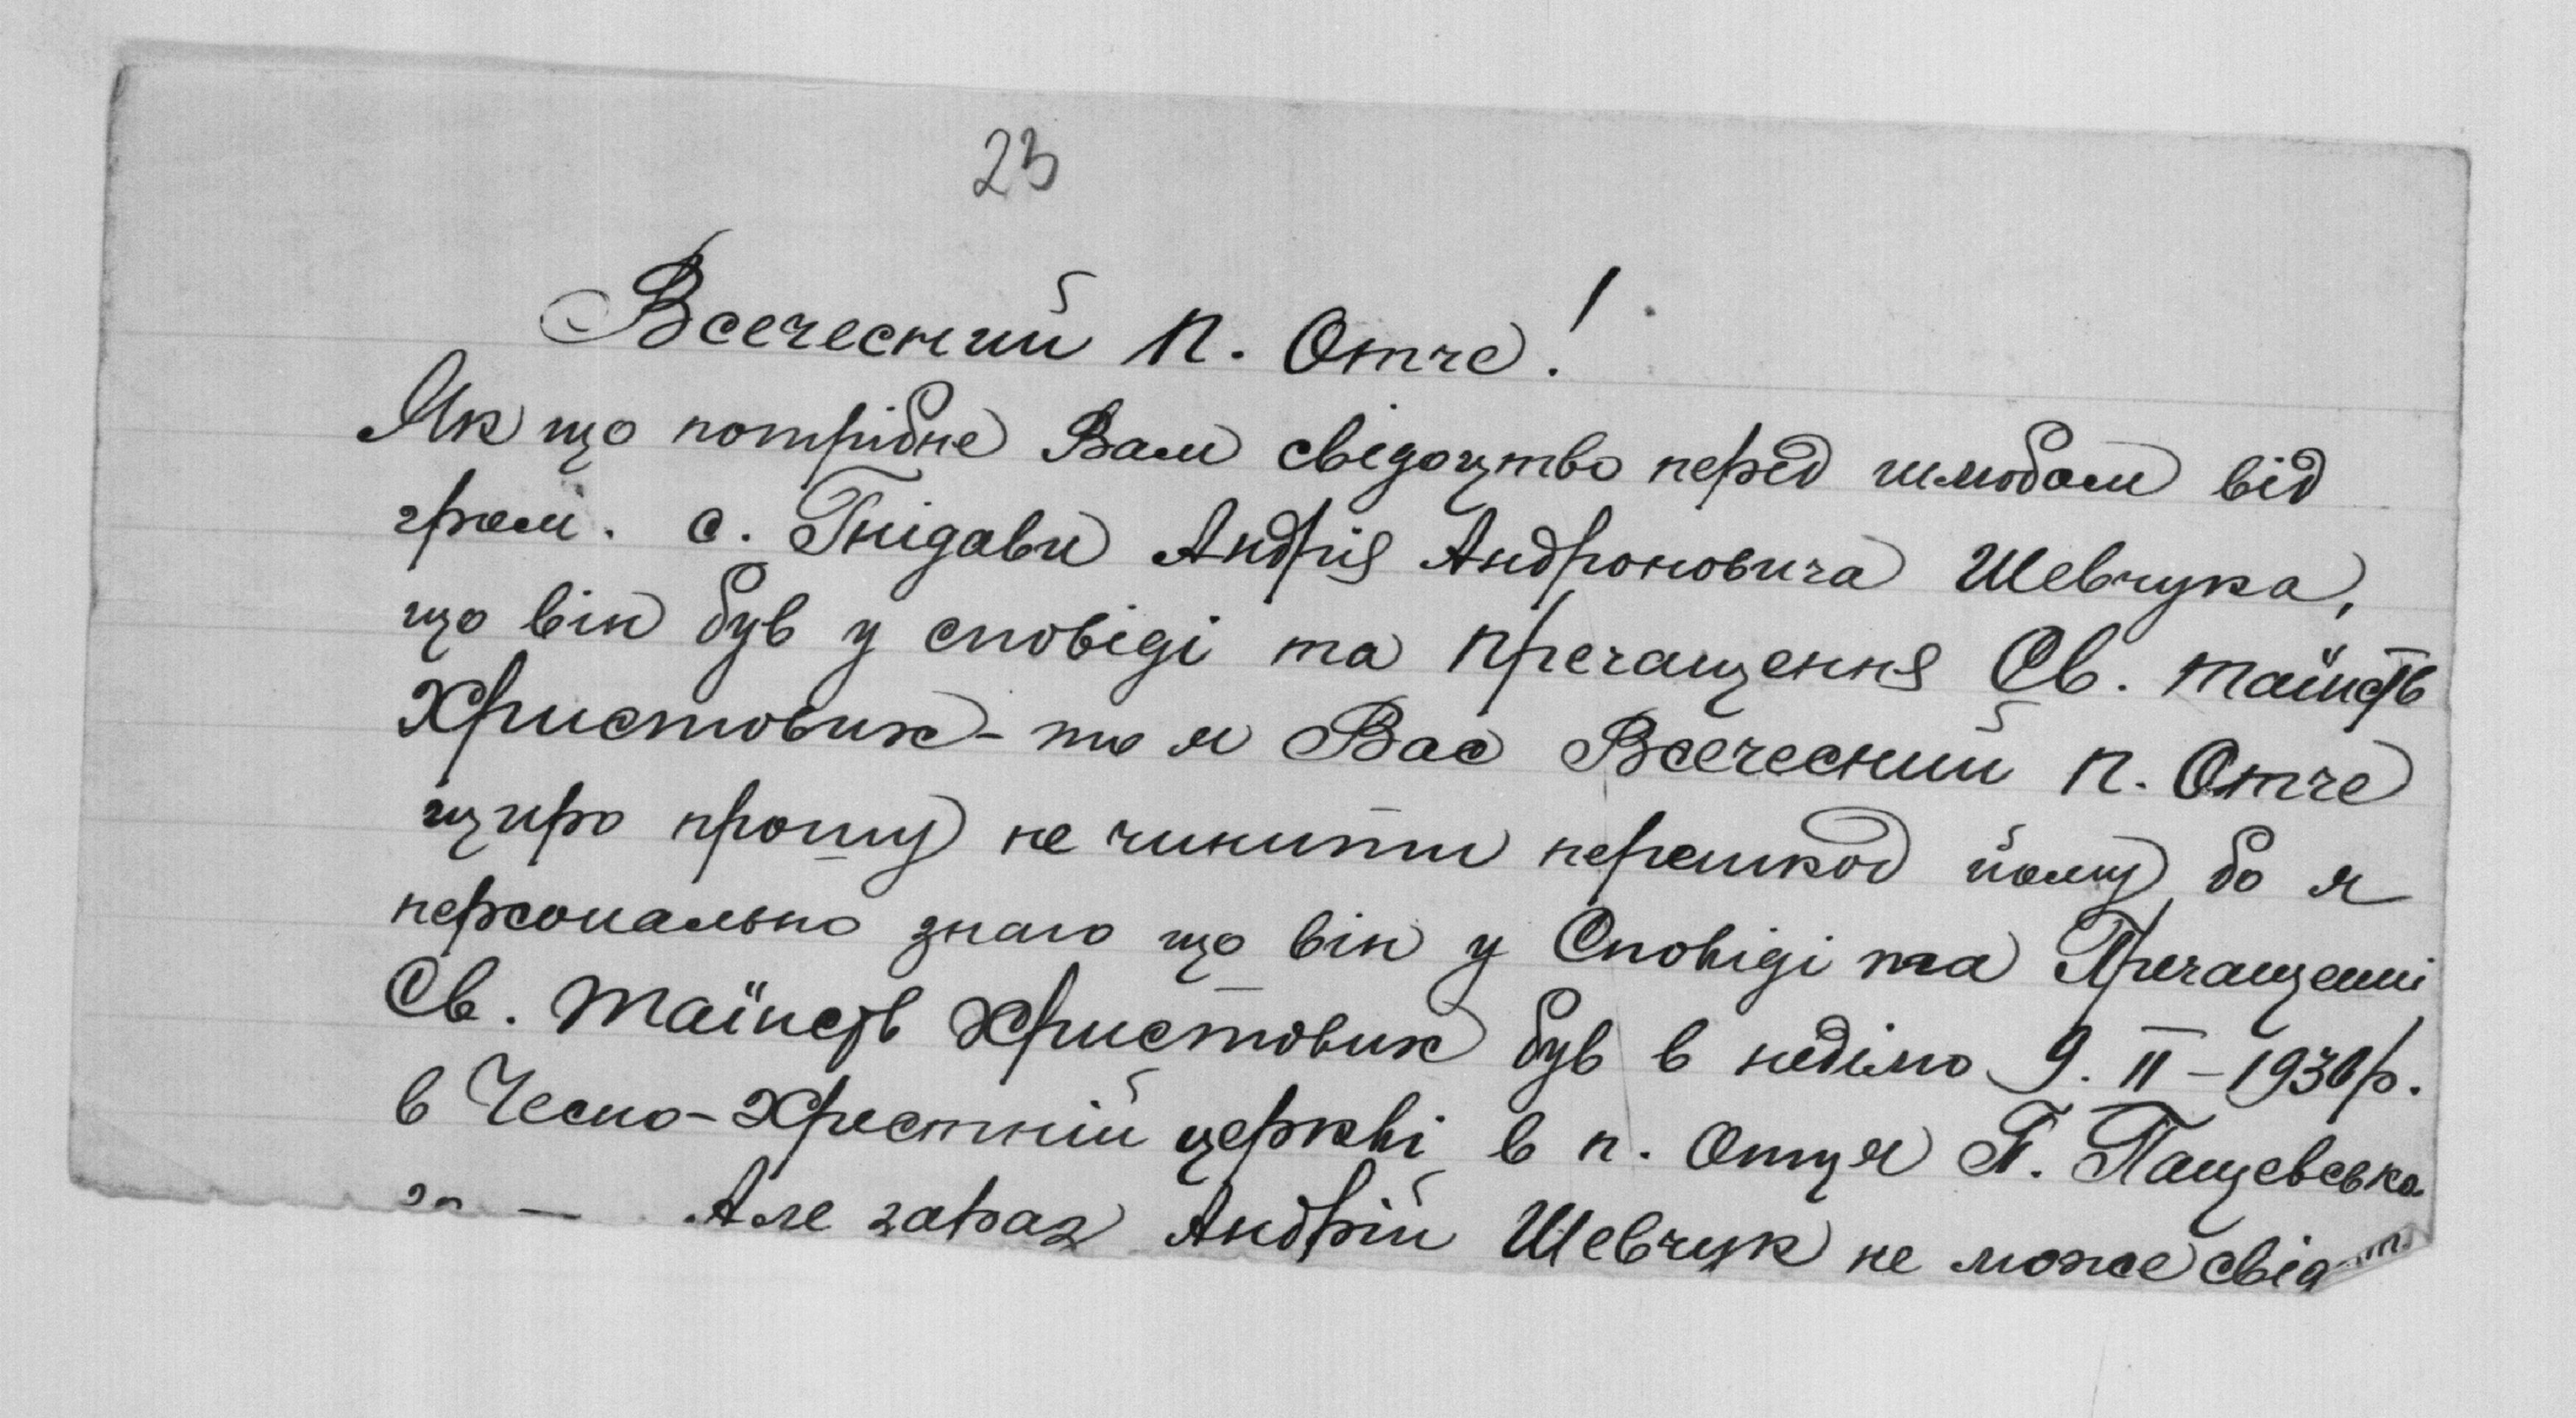 23
Всечесний п. Отче!
Як що потрібне Вам свідоцтво перед шлюбом від
гром. с. Гнідави Андрія Андроновича Шевчука,
що він був у сповіді та пречащення Св. таїнств
Христових - то я Вас Всечесний п. Отче
щиро прошу не чинити перешкод йому бо я
персонально знаю що він у Сповіді та Пречащенні
Св. Таїнств Христових був в неділю 9. II - 1930 р.
в Чесно-Хрестній церкві в п. Отця П. Пащевсько
го — Але зараз Андрій Шевчук не може